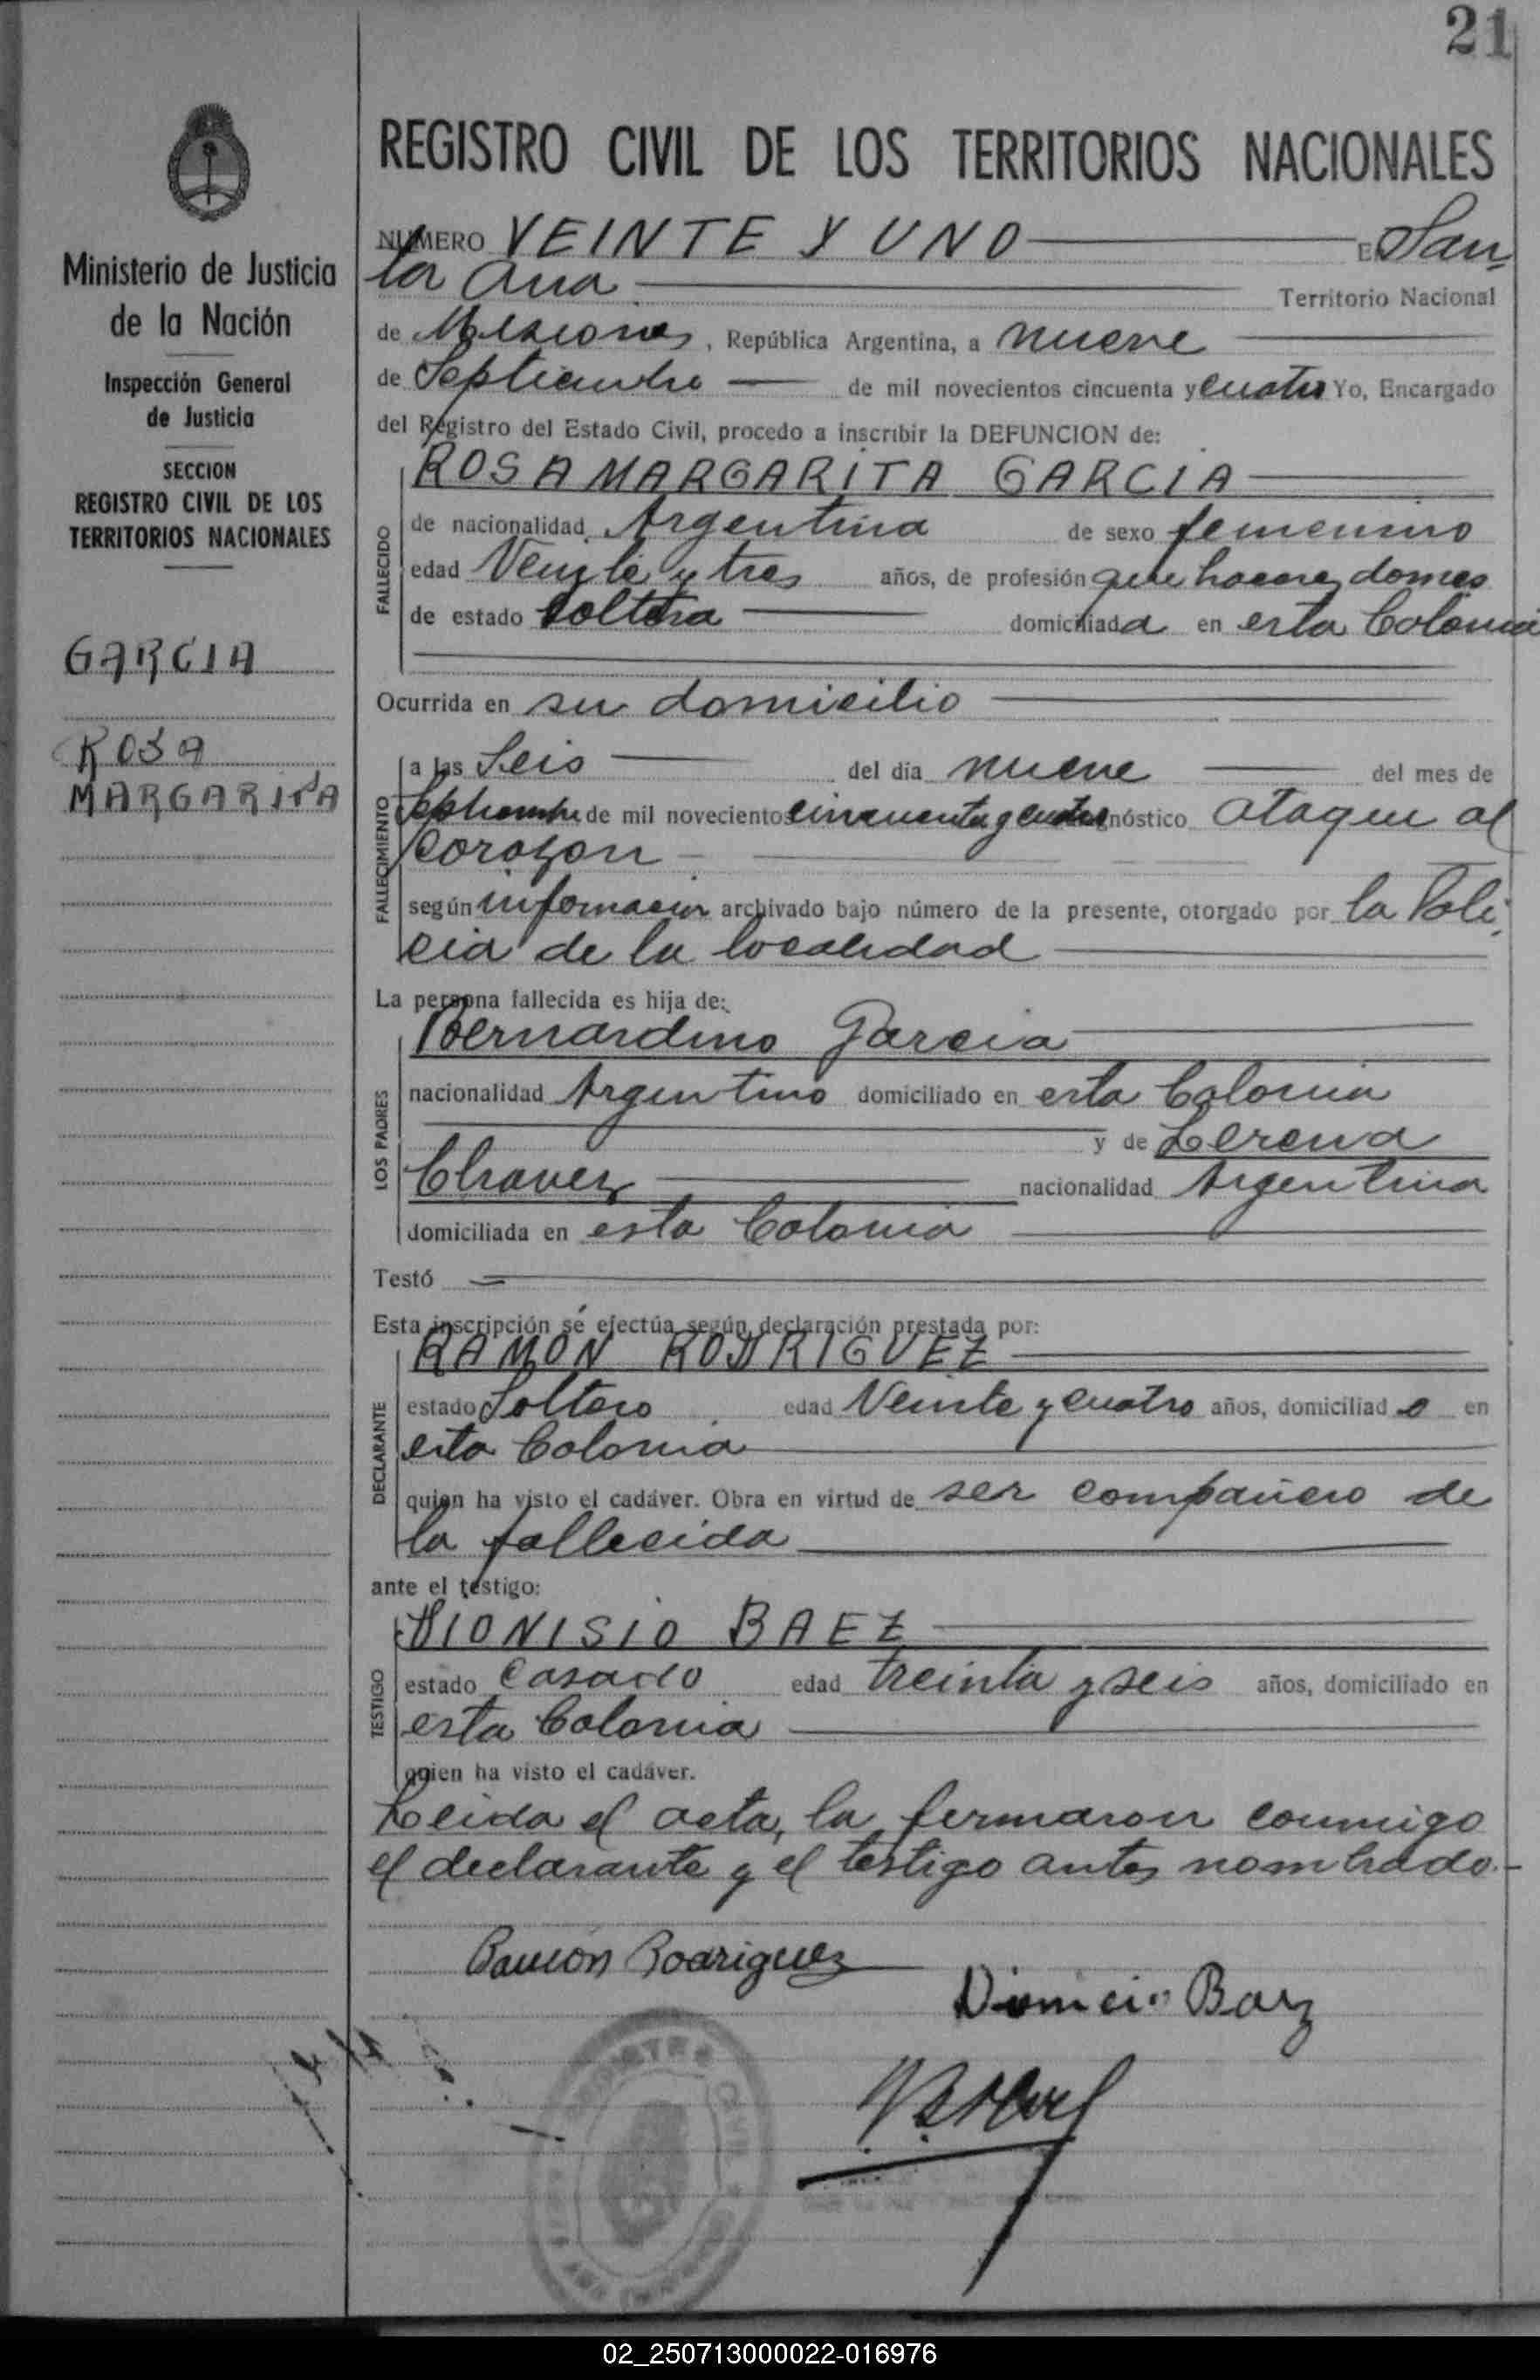 21
REGISTRO CIVIL DE LOS TERRITORIOS NACIONALES
Ministerio de Justicia
de la Nación
Inspección General
de Justicia
SECCION
REGISTRO CIVIL DE LOS
TERRITORIOS NACIONALES
GARCIA
ROSA
MARGARITA
NUMERO VEINTE Y UNO En San
ta Ana Territorio Nacional
de Misiones, República Argentina, a nueve
de Septiembre de mil novecientos cincuenta y cuatro Yo, Encargado
del Registro del Estado Civil, procedo a inscribir la DEFUNCION de:
ROSA MARGARITA GARCIA
FALLECIDO
de nacionalidad Argentina de sexo femenino
edad Veinte y tres años, de profesión que haceres domes
de estado soltera domiciliada en esta Colonia
Ocurrida en su domicilio
FALLECIMIENTO
a las Seis del día nueve del mes de
Septiembre de mil novecientos cincuenta y cuatro diagnóstico ataque al
Corazon
según informacion archivado bajo número de la presente, otorgado por la Poli
cia de la localidad
La persona fallecida es hija de:
LOS PADRES
Bernardino Garcia
nacionalidad Argentino domiciliado en esta Colonia
y de Lerena
Chavez nacionalidad Argentina
domiciliada en esta Colonia
Testó
Esta inscripción se efectúa según declaración prestada por:
DECLARANTE
RAMON RODRIGUEZ
estado Soltero edad Veinte y cuatro años, domiciliado en
esta Colonia
quien ha visto el cadáver. Obra en virtud de ser compañero de
la fallecida
ante el testigo:
TESTIGO
DIONISIO BAEZ
estado Casado edad treinta y seis años, domiciliado en
esta Colonia
quien ha visto el cadáver.
Leida el acta, la fermaron conmigo
el declarante y el testigo antes nombrado.-
Ramón Rodriguez
Dionicio Baez
REGISTRO CIVIL
02_250713000022-016976